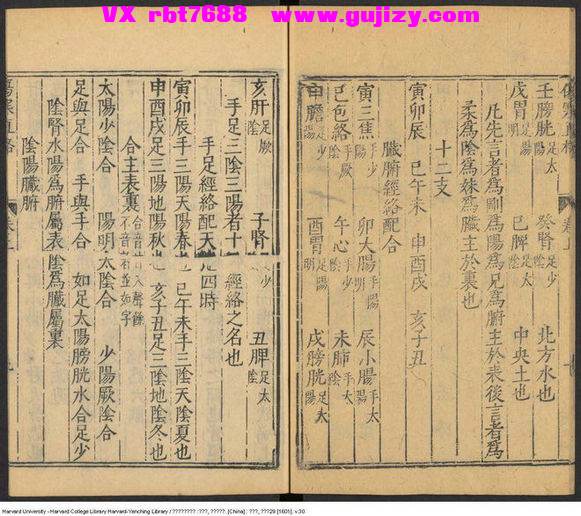 VX rbt7688 www.gujizy.com
壬膀胱足太陽 癸腎足少陰 北方水也
戊胃足陽明 己脾足太陰 中央土也
凡先言者為剛為陽為兄為腑主於表後言者為
柔為陰為妹為臟主於裏也
十二支
寅卯辰 巳午未 申酉戌 亥子丑
臟腑經絡配合
寅三焦手少陽 卯大腸手陽明 辰小腸手太陽
巳包絡手厥陰 午心手少陰 未肺手太陰
申膽足少陽 酉胃足陽明 戌膀胱足太陽
亥肝足厥陰 子腎足少陰 丑脾足太陰
手足三陰三陽者十二經絡之名也
手足經絡配天地四時
寅卯辰手三陽天陽春也 巳午未手三陰天陰夏也
申酉戌足三陽地陽秋也 亥子丑足三陰地陰冬也
合主表裏
太陽少陰合 陽明太陰合 少陽厥陰合
足與足合 手與手合 如足太陽膀胱水合足少
陰腎水陽為腑屬表陰為臟屬裏
陰陽臟腑
Harvard University - Harvard College Library Harvard-Yenching Library / ???????? : ???, ?????. [China] : ???, ???29 [1601]. v.30